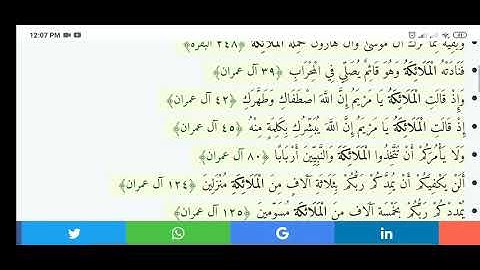 12:07 PM
وَبَقِيَّةٌ مِمَّا تَرَكَ آلُ مُوسَىٰ وَآلُ هَارُونَ تَحْمِلُهُ الْمَلَائِكَةُ ﴿٢٤٨ البقرة﴾
فَنَادَتْهُ الْمَلَائِكَةُ وَهُوَ قَائِمٌ يُصَلِّي فِي الْمِحْرَابِ ﴿٣٩ آل عمران﴾
وَإِذْ قَالَتِ الْمَلَائِكَةُ يَا مَرْيَمُ إِنَّ اللَّهَ اصْطَفَاكِ وَطَهَّرَكِ ﴿٤٢ آل عمران﴾
إِذْ قَالَتِ الْمَلَائِكَةُ يَا مَرْيَمُ إِنَّ اللَّهَ يُبَشِّرُكِ بِكَلِمَةٍ مِنْهُ ﴿٤٥ آل عمران﴾
وَلَا يَأْمُرَكُمْ أَنْ تَتَّخِذُوا الْمَلَائِكَةَ وَالنَّبِيِّينَ أَرْبَابًا ﴿٨٠ آل عمران﴾
أَلَنْ يَكْفِيَكُمْ أَنْ يُمِدَّكُمْ رَبُّكُمْ بِثَلَاثَةِ آلَافٍ مِنَ الْمَلَائِكَةِ مُنْزَلِينَ ﴿١٢٤ آل عمران﴾
يُمْدِدْكُمْ رَبُّكُمْ بِخَمْسَةِ آلَافٍ مِنَ الْمَلَائِكَةِ مُسَوِّمِينَ ﴿١٢٥ آل عمران﴾
G in